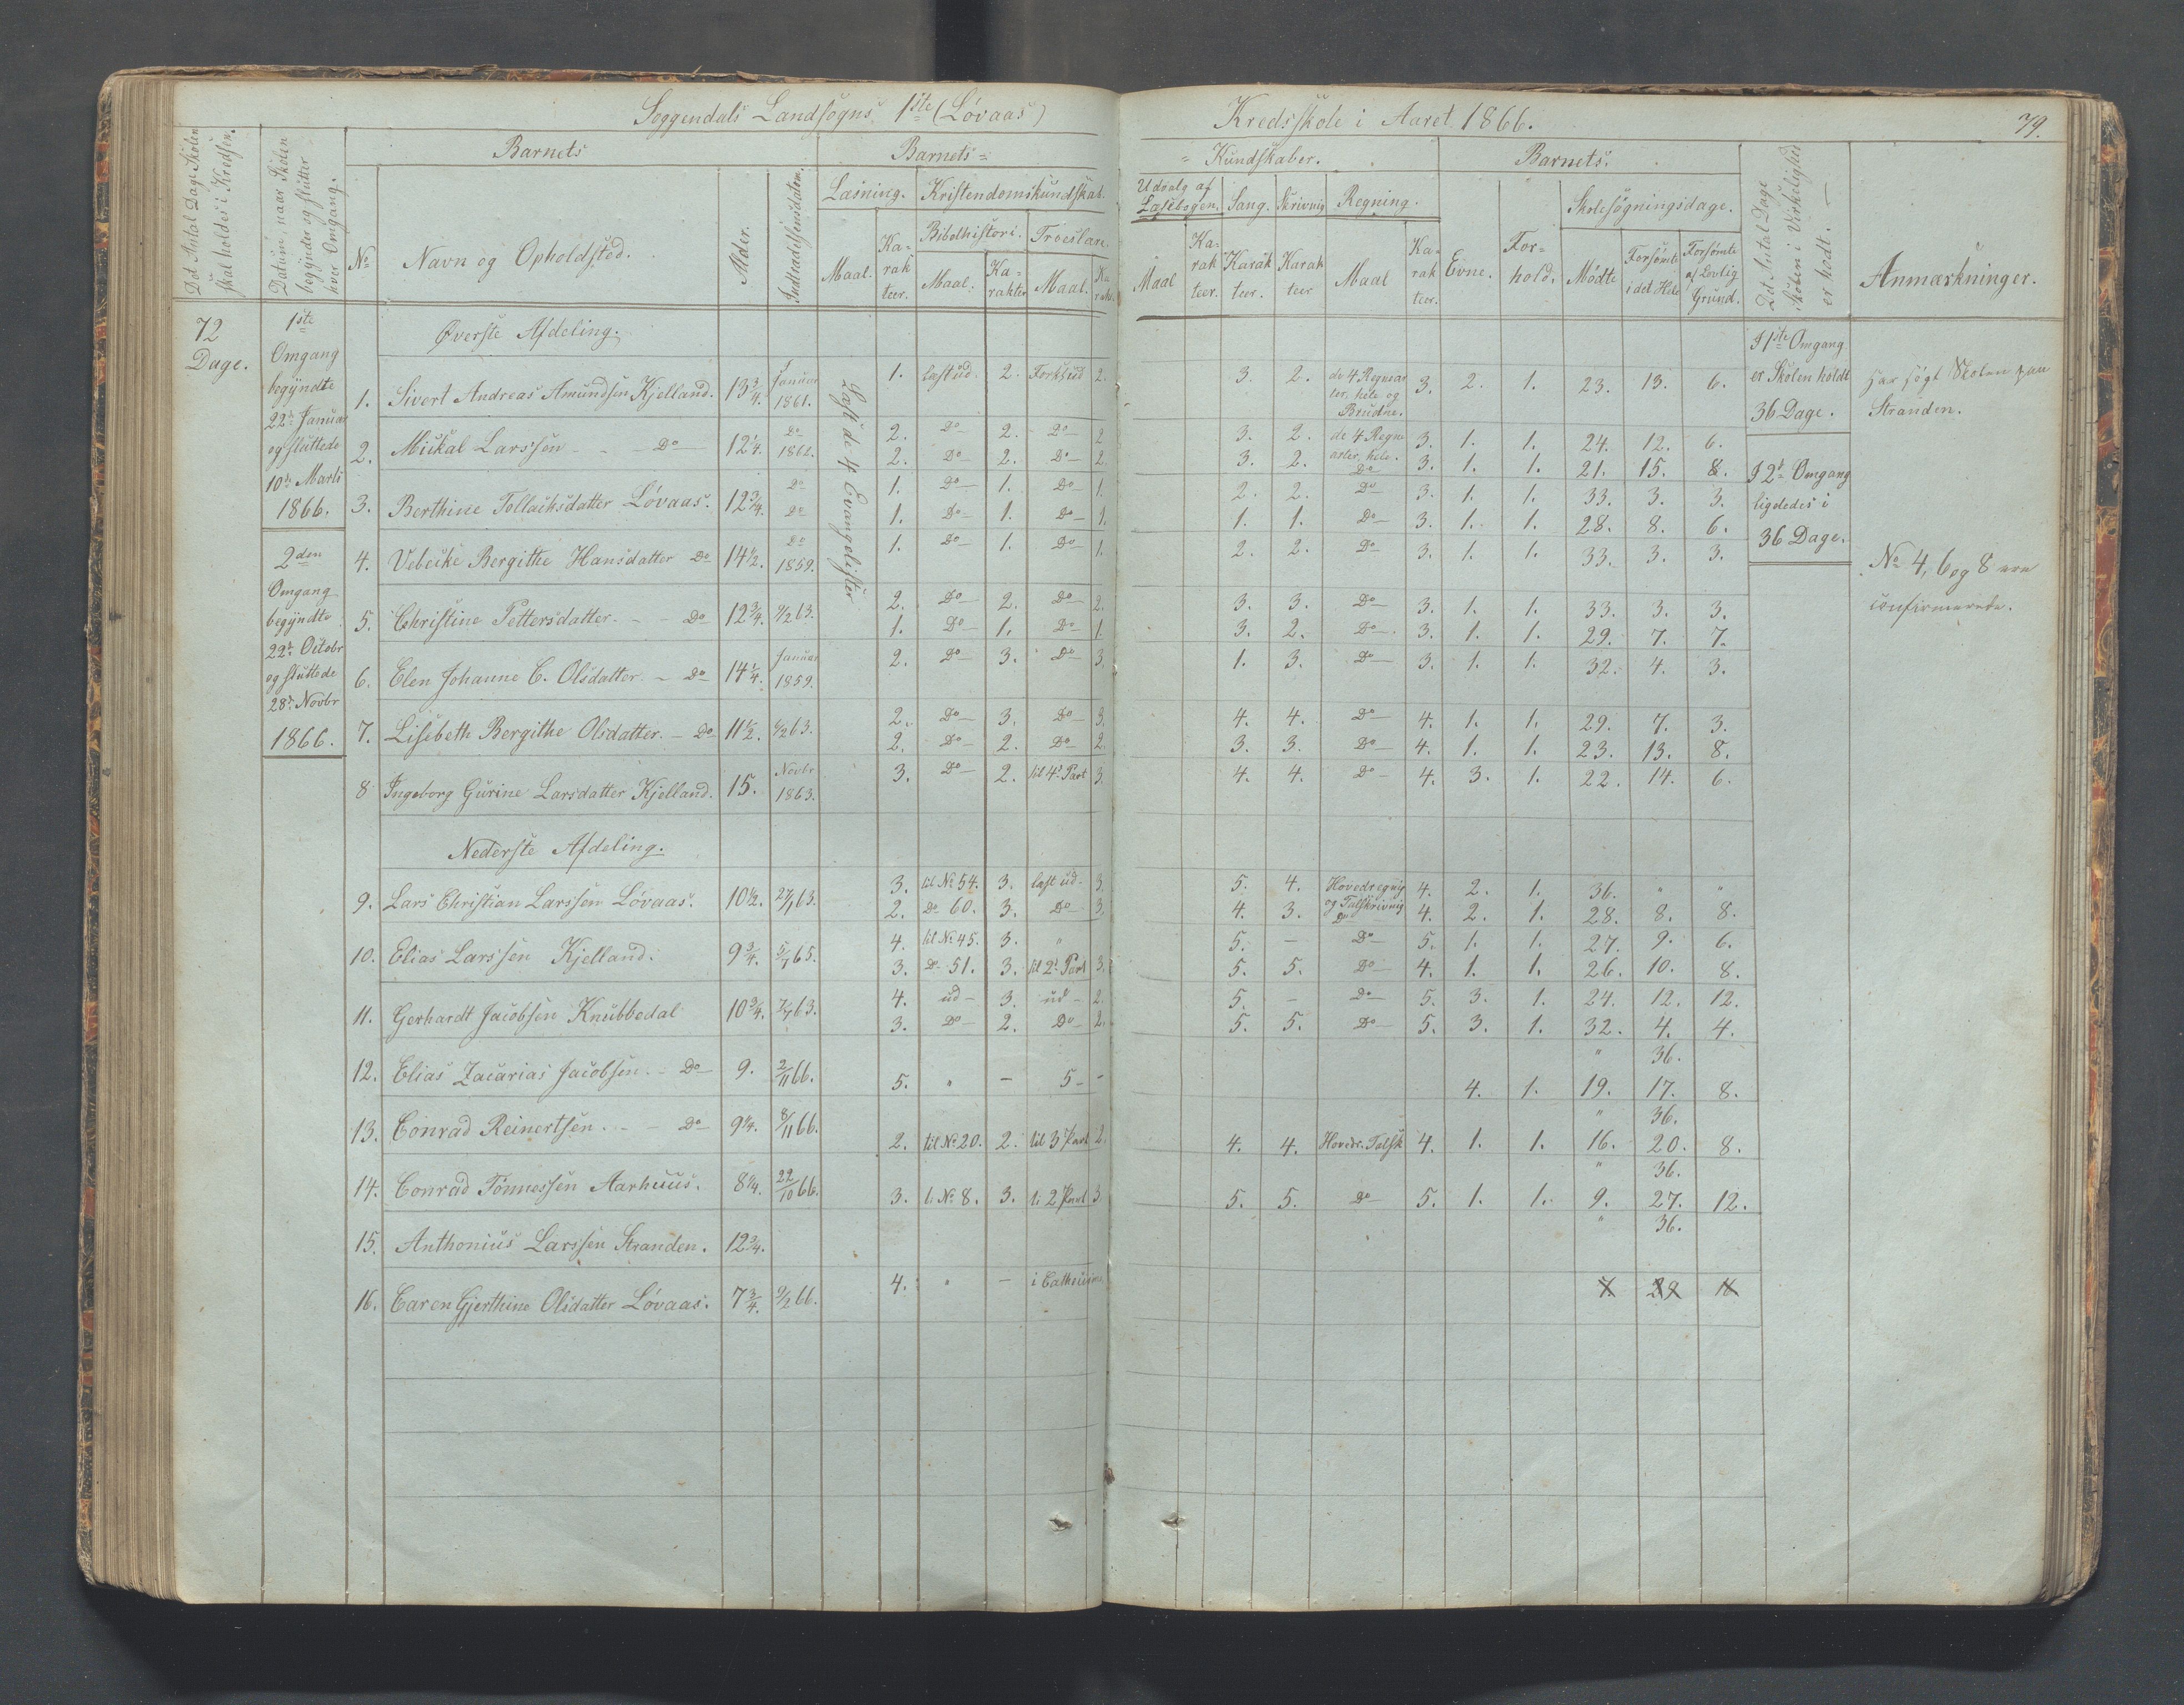 Soggendals Landsogns 1ste (Løvaas) Kredsskole i Aaret 1866. 79.
Det Antal Dage Skolen skal holdes i Kredsen.
Datum, naar Skolen begynder og slutter hver Omgang.
Barnets
No Navn og Opholdssted. Alder. Indtrædelsesdatum.
Barnets = = Kundskaber.
Læsning. Kristendomskundskab.
Maal. Karakteer. Bibelhistori. Maal. Karakter Troeslære. Maal.
Udvalg af Læsebogen. Maal Karakteer. Sang. Karakteer. Skrivnig Karakteer Regning. Maal Karakteer.
Barnets.
Evne. Forhold. Skolesøgningsdage. Mødte Forsømte i det Hele Forsømte af Lovlig Grund.
Det Antal Dage Skolen i Virkelighed er holdt. —
Anmærkninger.
72 Dage.
1ste Omgang begyndte 22de Januar og sluttede 10de Marts 1866.
2den Omgang begyndte 22d Octobr og sluttede 28d Novbr 1866.
Øverste Afdeling.
Læst de 4 Evangelister
1. Sivert Andreas Amundsen Kjelland. 13 3/4. Januar 1861. 1. læst ud. 2. 2. 3. 2. de 4 Regnearter, hele og Brudne. 3. 2. 1. 23. 13. 6.
2. Mickal Larssen - - Do 12 1/4. Do 1862. 2. Do 2. Do 2 3. 2. de 4 Regnearter, hele. 3. 1. 1. 24. 12. 6.
2. Do 2. Do 2. 3. 2. Do 3. 1. 1. 21. 15. 8.
3. Berthine Tollachsdatter Løvaas. 12 3/4. Do Do 1. Do 1. Do 1. 2. 2. Do 3. 1. 1. 33. 3. 3.
1. Do 1. Do 1. 1. 1. Do 3. 1. 1. 28. 8. 6.
4. Vebecke Bergithe Hansdatter Do 14 1/2. Do 1859. 1. Do 1. Do 1. 2. 2. Do 3. 1. 1. 33. 3. 3.
5. Christine Pettersdatter. - - Do 12 3/4. 63. 2. Do 2. Do 2. 3. 3. Do 3. 1. 1. 33. 3. 3.
1. Do 1. Do 1. 3. 2. Do 3. 1. 1. 29. 7. 7.
6. Elen Johanne C. Olsdatter - Do 14 1/4. Januar 1859. 2. Do 3. Do 3. 1. 3. Do 3. 1. 1. 32. 4. 3.
7. Lisebeth Bergithe Olsdatter. - Do 11 1/2. 63. 2. Do 3. Do 3. 4. 4. Do 4. 1. 1. 29. 7. 3.
2. Do 2. Do 2. 3. 3. Do 4. 1. 1. 23. 13. 8.
8 Ingeborg Gurine Larsdatter Kjelland. 15. Novbr 1863. 3. Do 2. til 4d Part 3. 4. 4. Do 4. 3. 1. 22. 14. 6.
Nederste Afdeling.
9. Lars Christian Larssen Løvaas. 10 1/2. 27/1 63. 3. til No 54. 3. læst ud. 3. 5. 4. Hovedregnig og Talskrivnig 4. 2. 1. 36. " "
2. Do 60. 3. Do 3. 4. 3. Do 4. 2. 1. 28. 8. 8.
10. Elias Larssen Kjelland. 9 3/4. 65. 4. til No 45. 3. " 5. — Do 5. 1. 1. 27. 9. 6.
3. Do 51. 3. til 2d Part 3. 5. 5. Do 4. 1. 1. 26. 10. 8.
11. Gerhardt Jacobsen Knubbedal 10 3/4. 63. 4. ud - 3. ud - 2. 5. - Do 5. 3. 1. 24. 12. 12.
3. Do 2. Do 2. 5. 5. Do 5. 3. 1. 32. 4. 4.
12. Elias Zacarias Jacobsen. - Do 9. 2/11 66. " 36.
5. " — 5 - - 4. 1. 19. 17. 8.
13. Conrad Reinertsen. - - Do 9 1/4. 8/11 66. " 36.
2. til No 20. 2. til 3 Part 2. 4. 4. Hovedr. Talsk 4. 1. 1. 16. 20. 8.
14. Conrad Tönnessen Aarhuus. 8 1/4. 22/10 66. " 36.
3. t. No 8. 3. t. 2 Part 3 5. 5. Do 5. 1. 1. 9. 27. 12.
15. Anthonius Larssen Stranden. 12 3/4. " 36.
16. Caren Gjerthine Olsdatter Løvaas. 7 3/4. 66. 4. " —
I 1ste Omgang er Skolen holdt 36 Dage.
I 2d Omgang ligeledes i 36 Dage.
Har søgt Skolen paa Stranden.
No 4, 6 og 8 ere confirmerede.